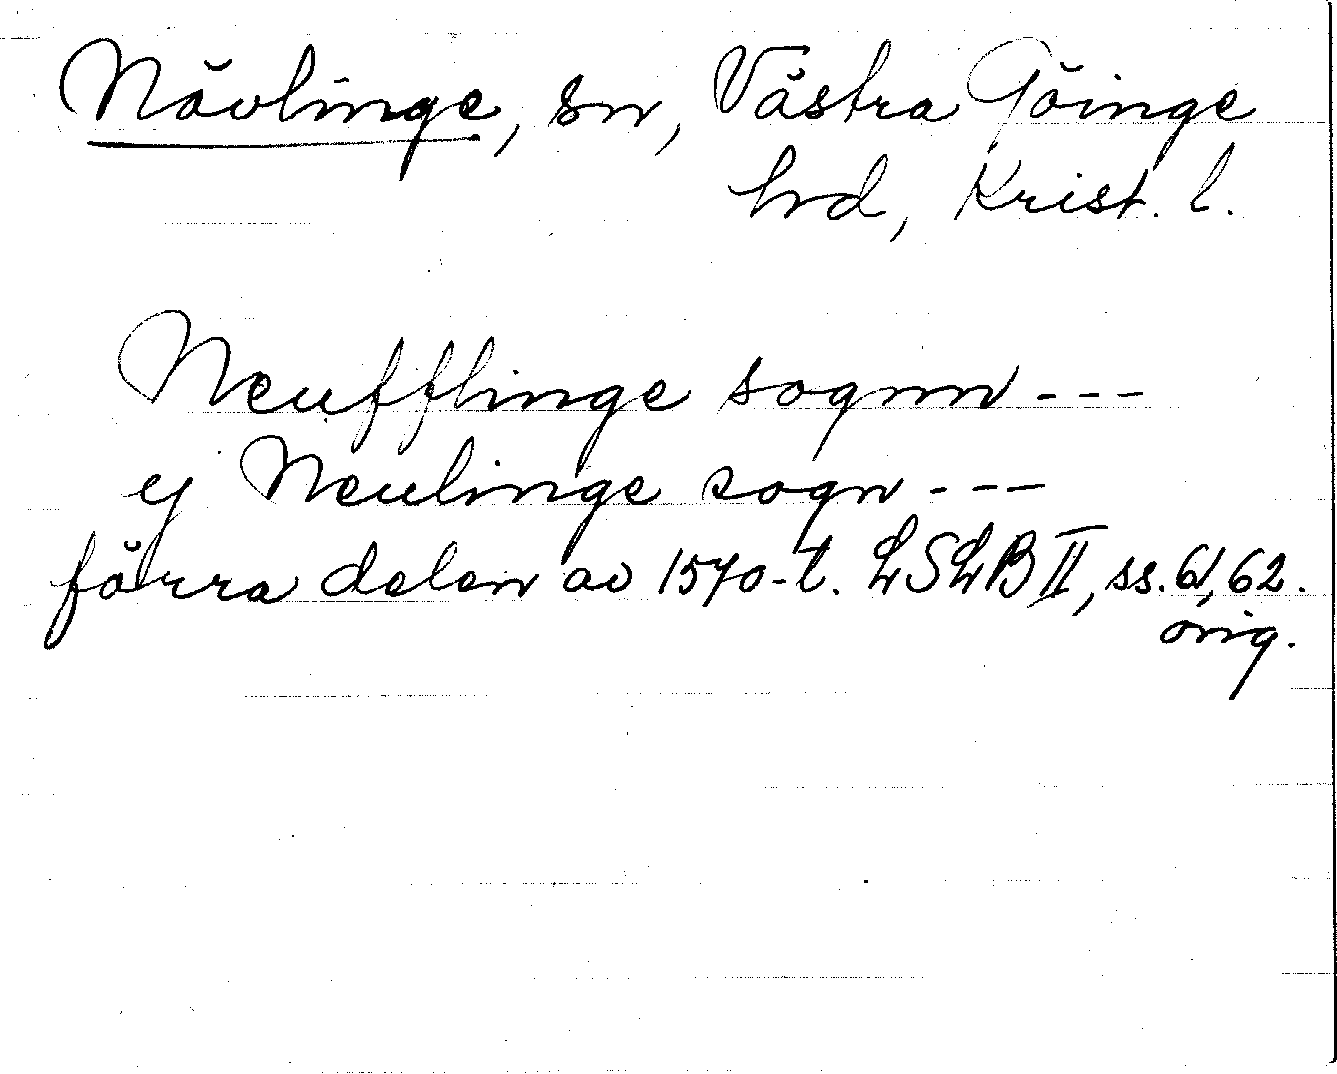 Nävlinge, sn, Västra Göinge
hd, Krist. l.
Neufflinge sognn ---
ej Neulinge sogn ---
förra delen av 1570-t. LSLB II, ss. 61, 62.
orig.